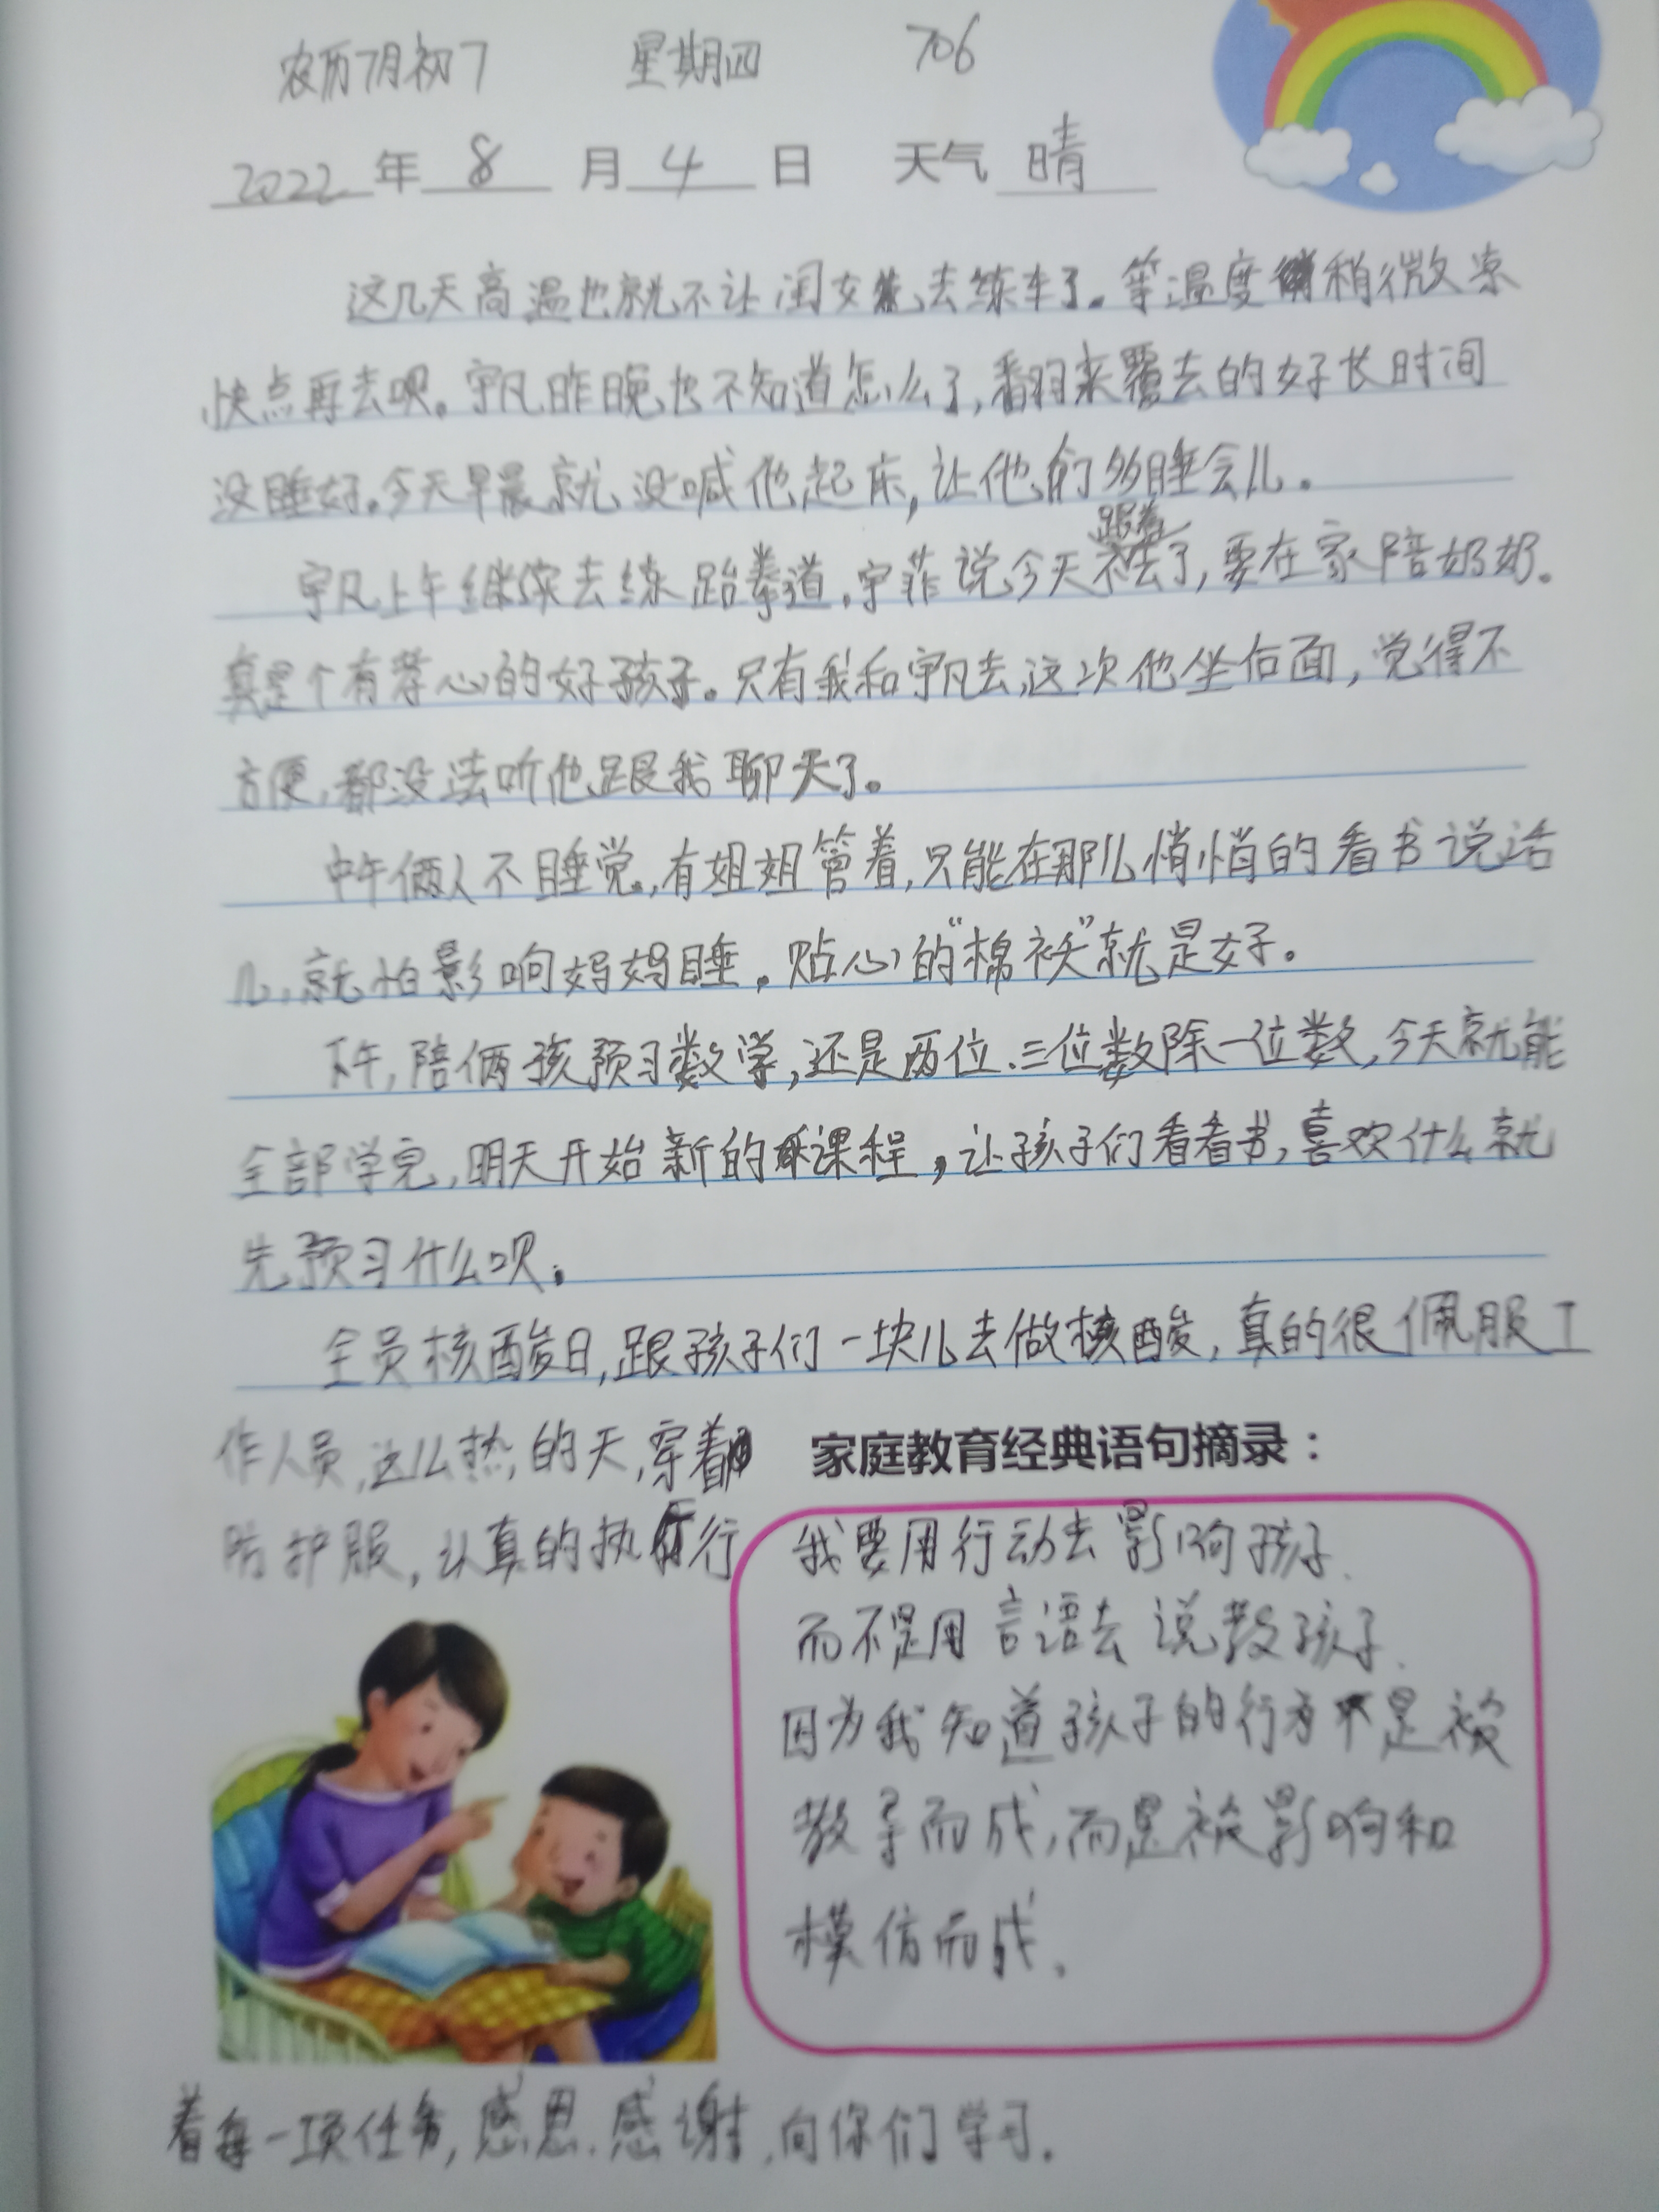 农历7月初7 星期四 706
2022年8月4日 天气晴
这几天高温也就不让闺女去练车了。等温度稍微凉
快点再去呗。宇凡昨晚也不知道怎么了,翻来覆去的好长时间
没睡好。今天早晨就没喊他起床,让他俩多睡会儿。
跟着
宇凡上午继续去练跆拳道,宇菲说今天不去了,要在家陪奶奶。
真是个有孝心的好孩子。只有我和宇凡去,这次他坐后面,觉得不
方便,都没法听他跟我聊天了。
中午俩人不睡觉,有姐姐管着,只能在那儿悄悄的看书说话
儿,就怕影响妈妈睡。贴心的“棉袄”就是好。
下午,陪俩孩预习数学,还是两位、三位数除一位数,今天就能
全部学完,明天开始新的课程,让孩子们看看书,喜欢什么就
先预习什么呗。
全员核酸日,跟孩子们一块儿去做核酸,真的很佩服工
作人员,这么热的天,穿着
防护服,认真的执行
家庭教育经典语句摘录:
我要用行动去影响孩子
而不是用言语去说教孩子.
因为我知道孩子的行为不是被
教导而成,而是被影响和
模仿而成.
着每一项任务,感恩.感谢,向你们学习.